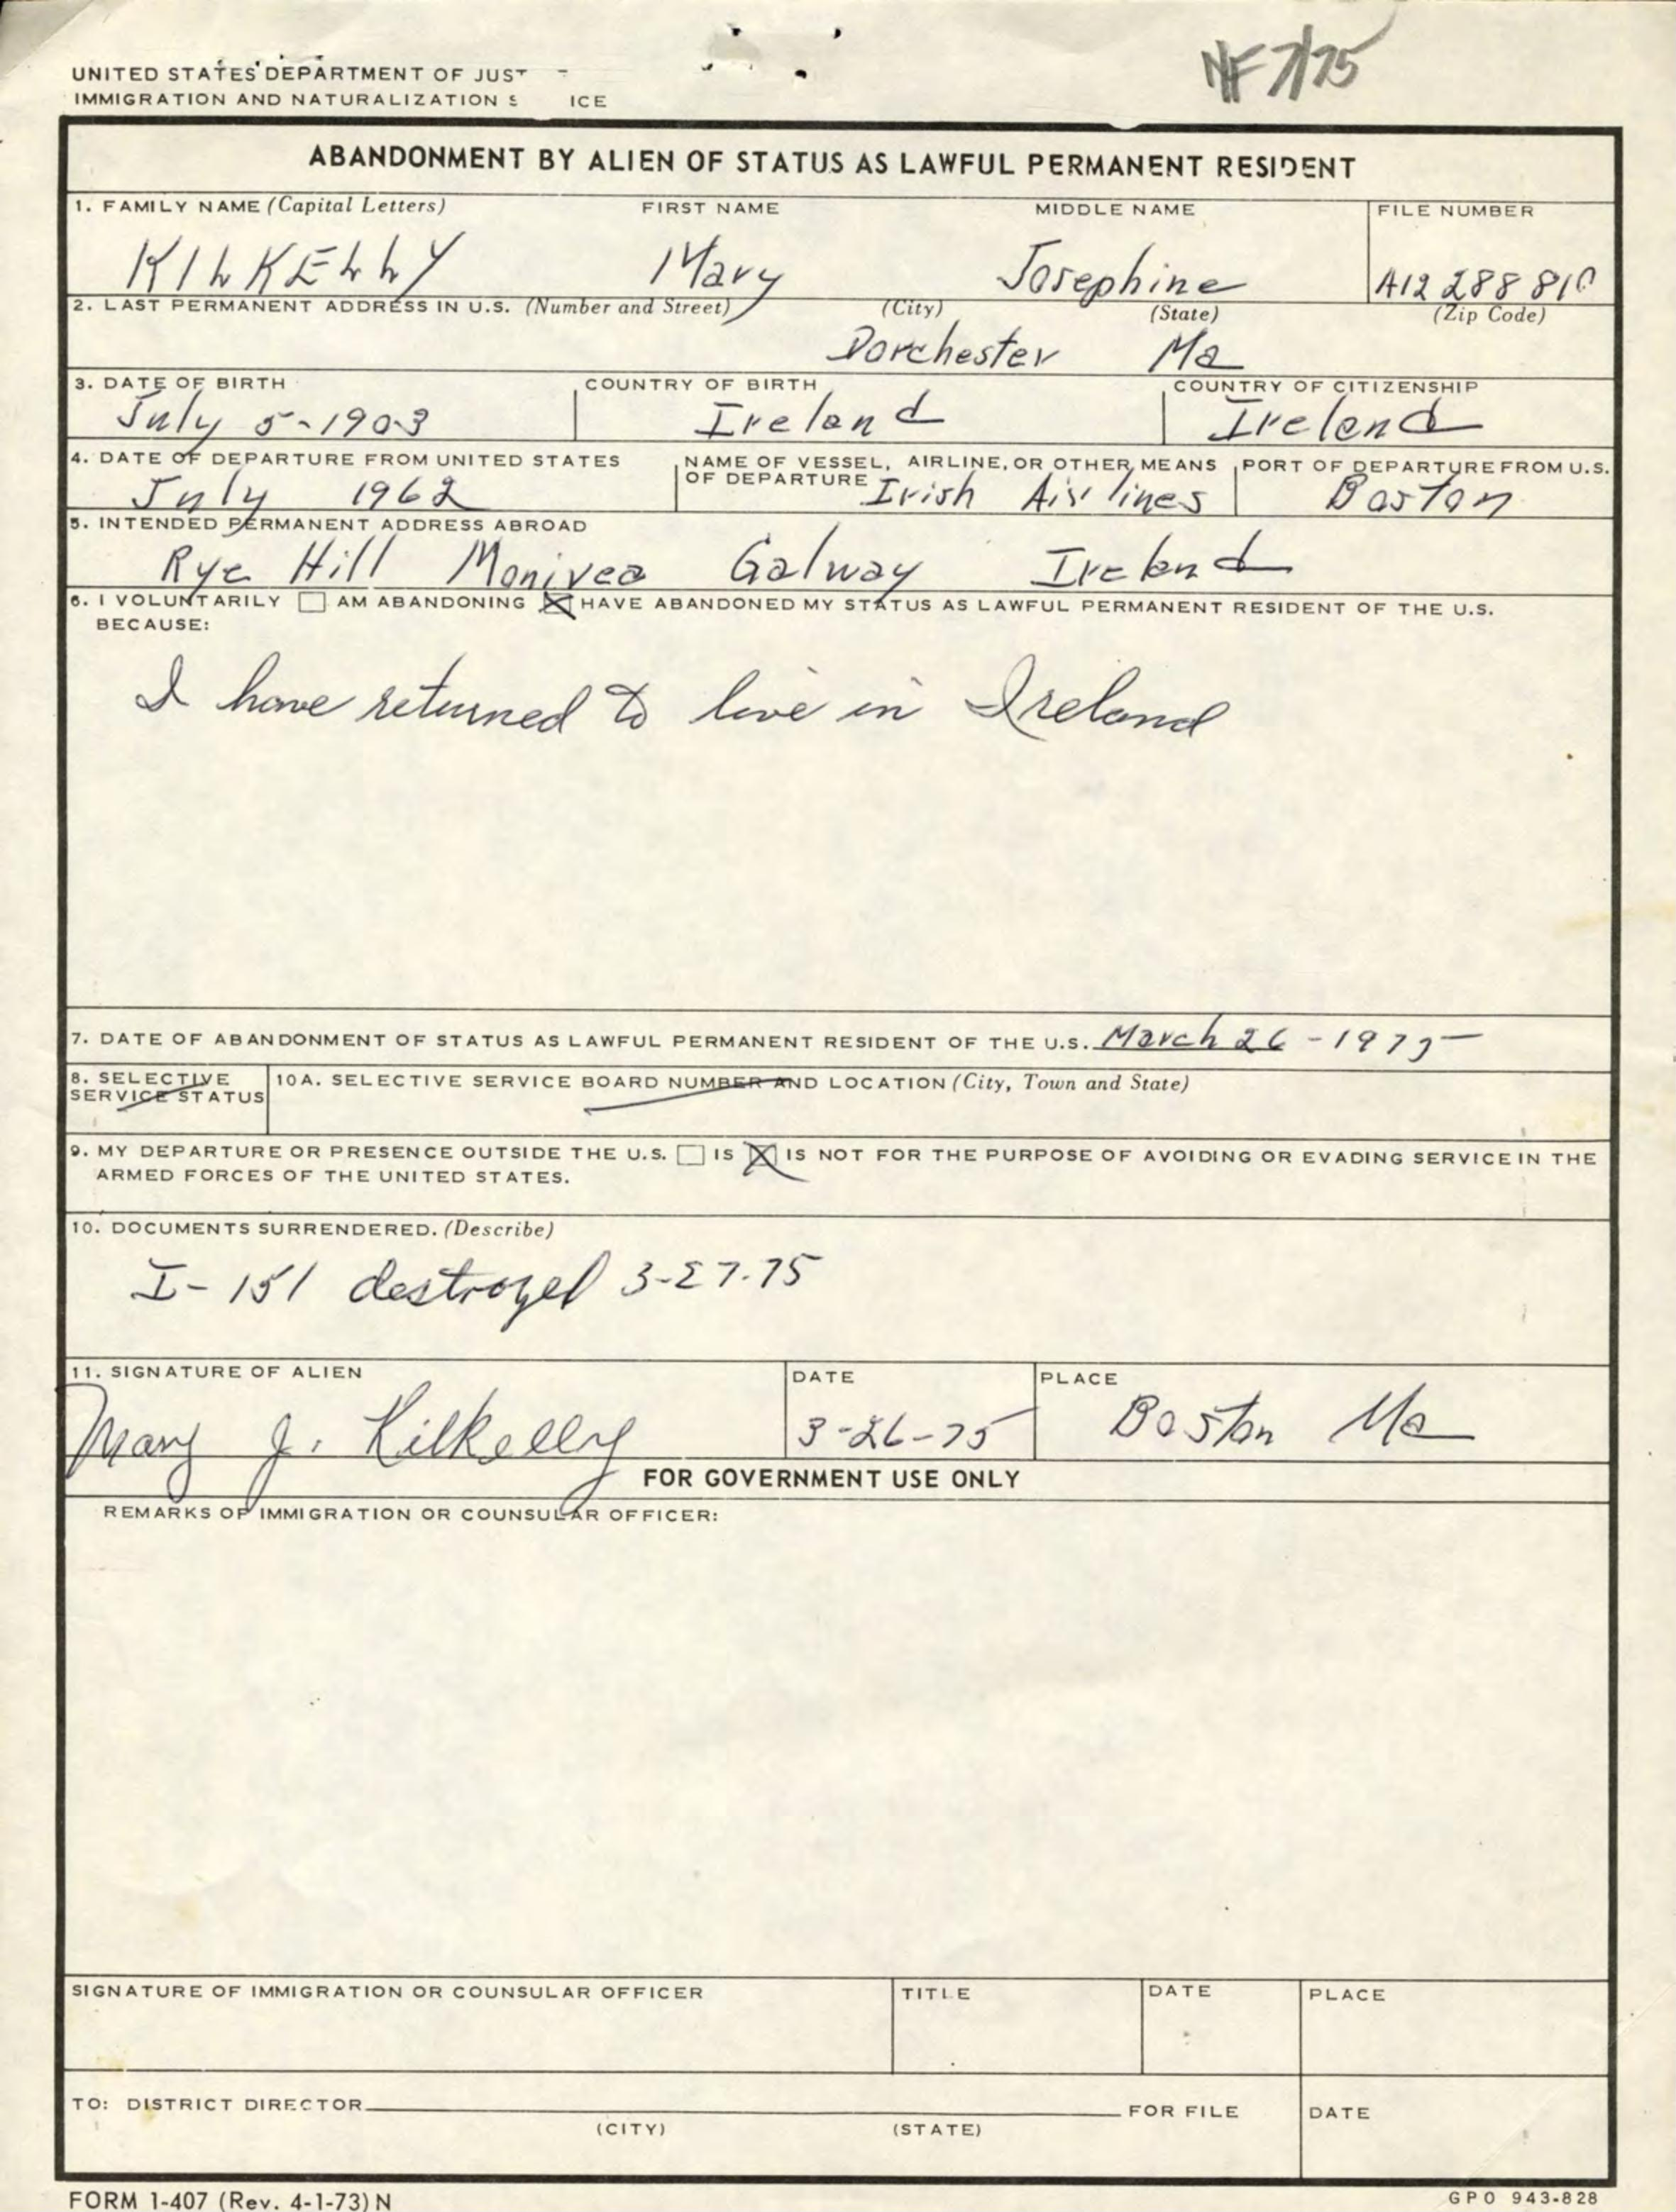 NF 7/75
UNITED STATES DEPARTMENT OF JUST
IMMIGRATION AND NATURALIZATION S ICE
ABANDONMENT BY ALIEN OF STATUS AS LAWFUL PERMANENT RESIDENT
1. FAMILY NAME (Capital Letters) FIRST NAME MIDDLE NAME FILE NUMBER
KILKELLY Mary Josephine A12 288 810
2. LAST PERMANENT ADDRESS IN U.S. (Number and Street) (City) (State) (Zip Code)
Dorchester Ma
3. DATE OF BIRTH COUNTRY OF BIRTH COUNTRY OF CITIZENSHIP
July 5-1903 Ireland Ireland
4. DATE OF DEPARTURE FROM UNITED STATES NAME OF VESSEL, AIRLINE, OR OTHER MEANS PORT OF DEPARTURE FROM U.S.
OF DEPARTURE
July 1962 Irish Airlines Boston
5. INTENDED PERMANENT ADDRESS ABROAD
Rye Hill Monivea Galway Ireland
6. I VOLUNTARILY ☐ AM ABANDONING ☒ HAVE ABANDONED MY STATUS AS LAWFUL PERMANENT RESIDENT OF THE U.S.
BECAUSE:
I have returned to live in Ireland
7. DATE OF ABANDONMENT OF STATUS AS LAWFUL PERMANENT RESIDENT OF THE U.S. March 26-1975
8. SELECTIVE 10A. SELECTIVE SERVICE BOARD NUMBER AND LOCATION (City, Town and State)
SERVICE STATUS
9. MY DEPARTURE OR PRESENCE OUTSIDE THE U.S. ☐ IS ☒ IS NOT FOR THE PURPOSE OF AVOIDING OR EVADING SERVICE IN THE
ARMED FORCES OF THE UNITED STATES.
10. DOCUMENTS SURRENDERED. (Describe)
I-151 destroyed 3-27-75
11. SIGNATURE OF ALIEN DATE PLACE
Mary J. Kilkelly 3-26-75 Boston Ma
FOR GOVERNMENT USE ONLY
REMARKS OF IMMIGRATION OR COUNSULAR OFFICER:
SIGNATURE OF IMMIGRATION OR COUNSULAR OFFICER TITLE DATE PLACE
TO: DISTRICT DIRECTOR FOR FILE DATE
(CITY) (STATE)
FORM I-407 (Rev. 4-1-73) N GPO 943-828